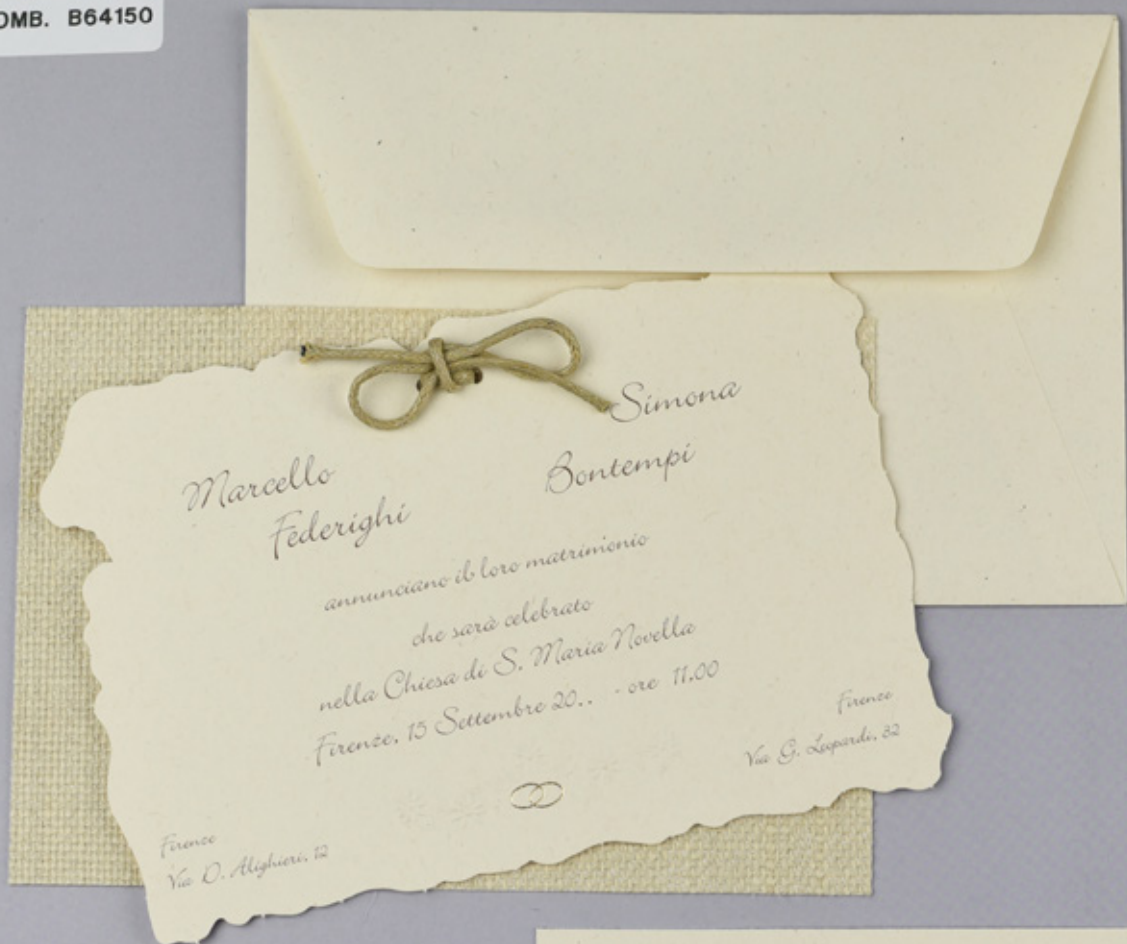 OMB. B64150
Marcello
Federighi
Simona
Bontempi
annunciano il loro matrimonio
che sarà celebrato
nella Chiesa di S. Maria Novella
Firenze, 15 Settembre 20.. - ore 11.00
Firenze
Via G. Leopardi, 32
Firenze
Via D. Alighieri, 12